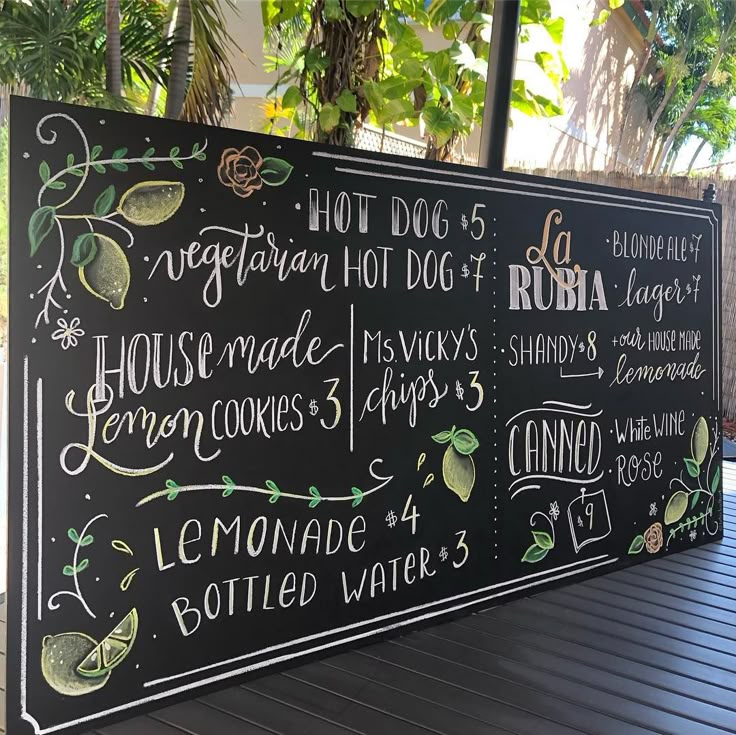 HOT DOG $5
vegetarian HOT DOG $7
HOUSEmade
Lemon COOKIES $3
Ms. VICKY'S
chips $3
LEMONADE $4
BOTTLED WATER $3
La
RUBIA
· BLONDE ALE $7
· lager $7
· SHANDY $8
+ our HOUSE MADE
lemonade
CANNED
· White WINE
· ROSE
$9